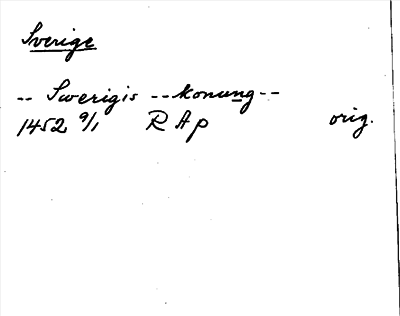 Sverige
-- Swerigis -- konung --
1452 9/1 RAp orig.